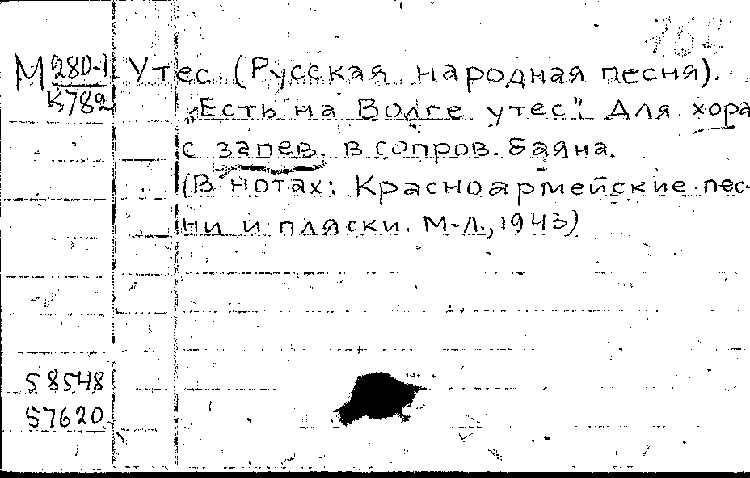 М 280-1 Утес (Русская народная песня).
К782 „Есть на Волге утес". Для хора
с запев. в сопров. баяна.
(В нотах: Красноармейские пес-
ни и пляски. М-Л., 1943)
58548
57620